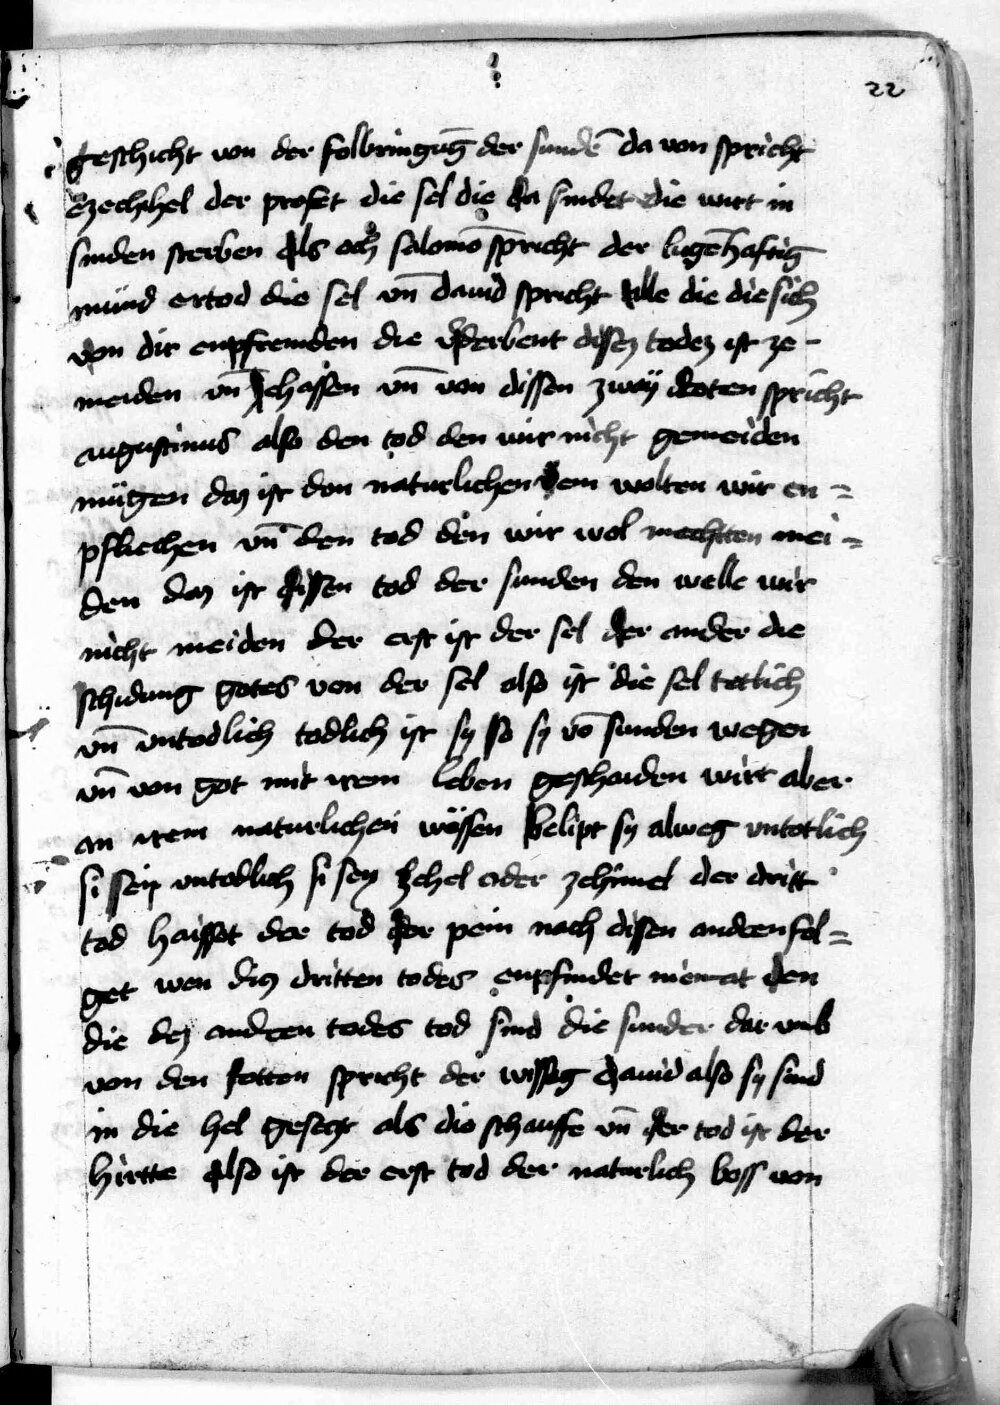 22
geschicht von der folbringūg der sundē da von spricht
Ezechhel der profet die sel die da sindet die wirt in
sinden sterben Als och salomō spricht der lugēhaftig
mund ertod die sel vn̄ dauid spricht Alle die die sich
von dir enpfremden die vderbent disez todez ist ze -
meiden vn̄ ze hassen vn̄ von dissen zway doten spricht
augustinus also den tod den wir nicht gemeiden
mügen daz ist den naturlichen dem wolten wir en =
pfliechen vn̄ den tod den wir wol mechtten mei =
den daz ist dissen tod der sunden den welle wir
nicht meiden Der erst ist der sel der ander die
schidung gotes von der sel also ist die sel tetlich
vn̄ vntodlich todlich ist sy so sy vō sunden wegen
vn̄ von got mit irem leben geschaiden wirt aber
an irem naturlichen wüssen belipt sy alweg vntotlich
si seip vntodlich si sey zehel oder zehimel der dritt
tod haisset der tod der pein nach disen andren fol =
get wen diz dritten todes enpfindet niemat den
die dez andren todes tod sind die sunder dar vmb
von den totten spricht der wissag dauid also sy sind
in die hel gesetzt als die schauffe vn̄ der tod ist der
hirtte Also ist der erst tod der naturlich boss von